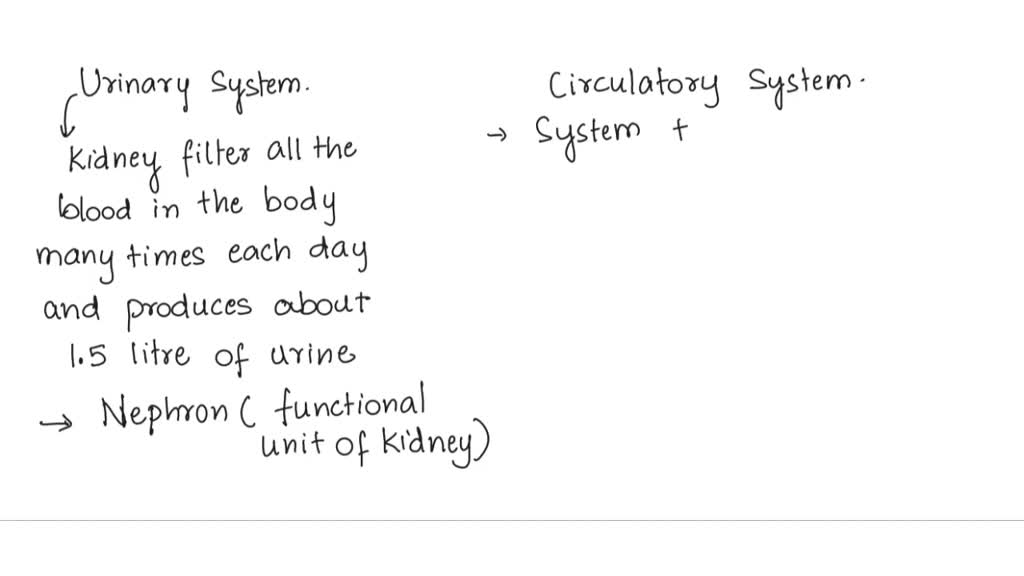 Urinary System.
Kidney filter all the
blood in the body
many times each day
and produces about
1.5 litre of urine
→ Nephron ( functional
unit of kidney)
Circulatory System.
→ System t